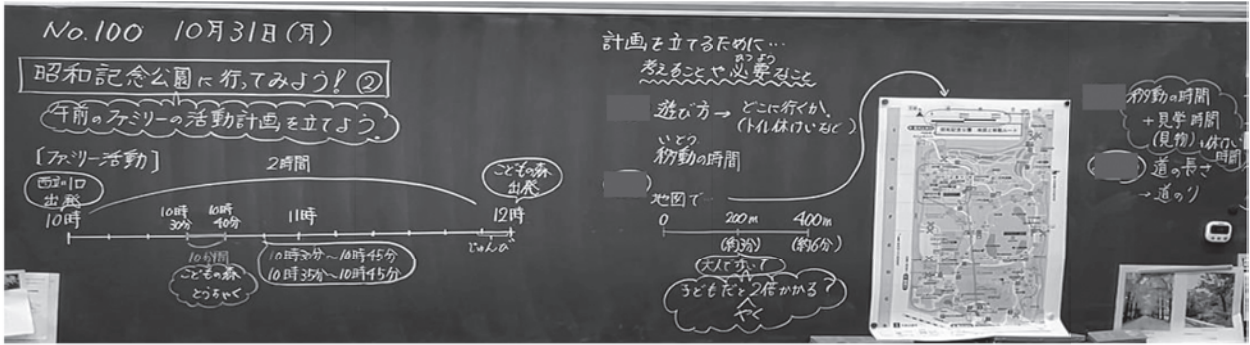 No.100 10月31日(月)
昭和記念公園に行ってみよう! ②
午前のファミリーの活動計画を立てよう。
[ファミリー活動]
2時間
西立川口
出発
こどもの森
出発
10時
10時
30分
10時
40分
11時
12時
じゅんび
10分間
こどもの森
とうちゃく
10時30分〜10時45分
10時35分〜10時45分
計画を立てるために…
ひつよう
考えることや必要なこと
遊び方→どこに行くか。
(トイレ休けいなど)
いどう
移動の時間
地図で…
0 200m 400m
(約3分) (約6分)
大人で歩いて
子どもだと2倍かかる?
やく
移動の時間
+見学時間
(見物)+休けい
時間
道の長さ
→道のり